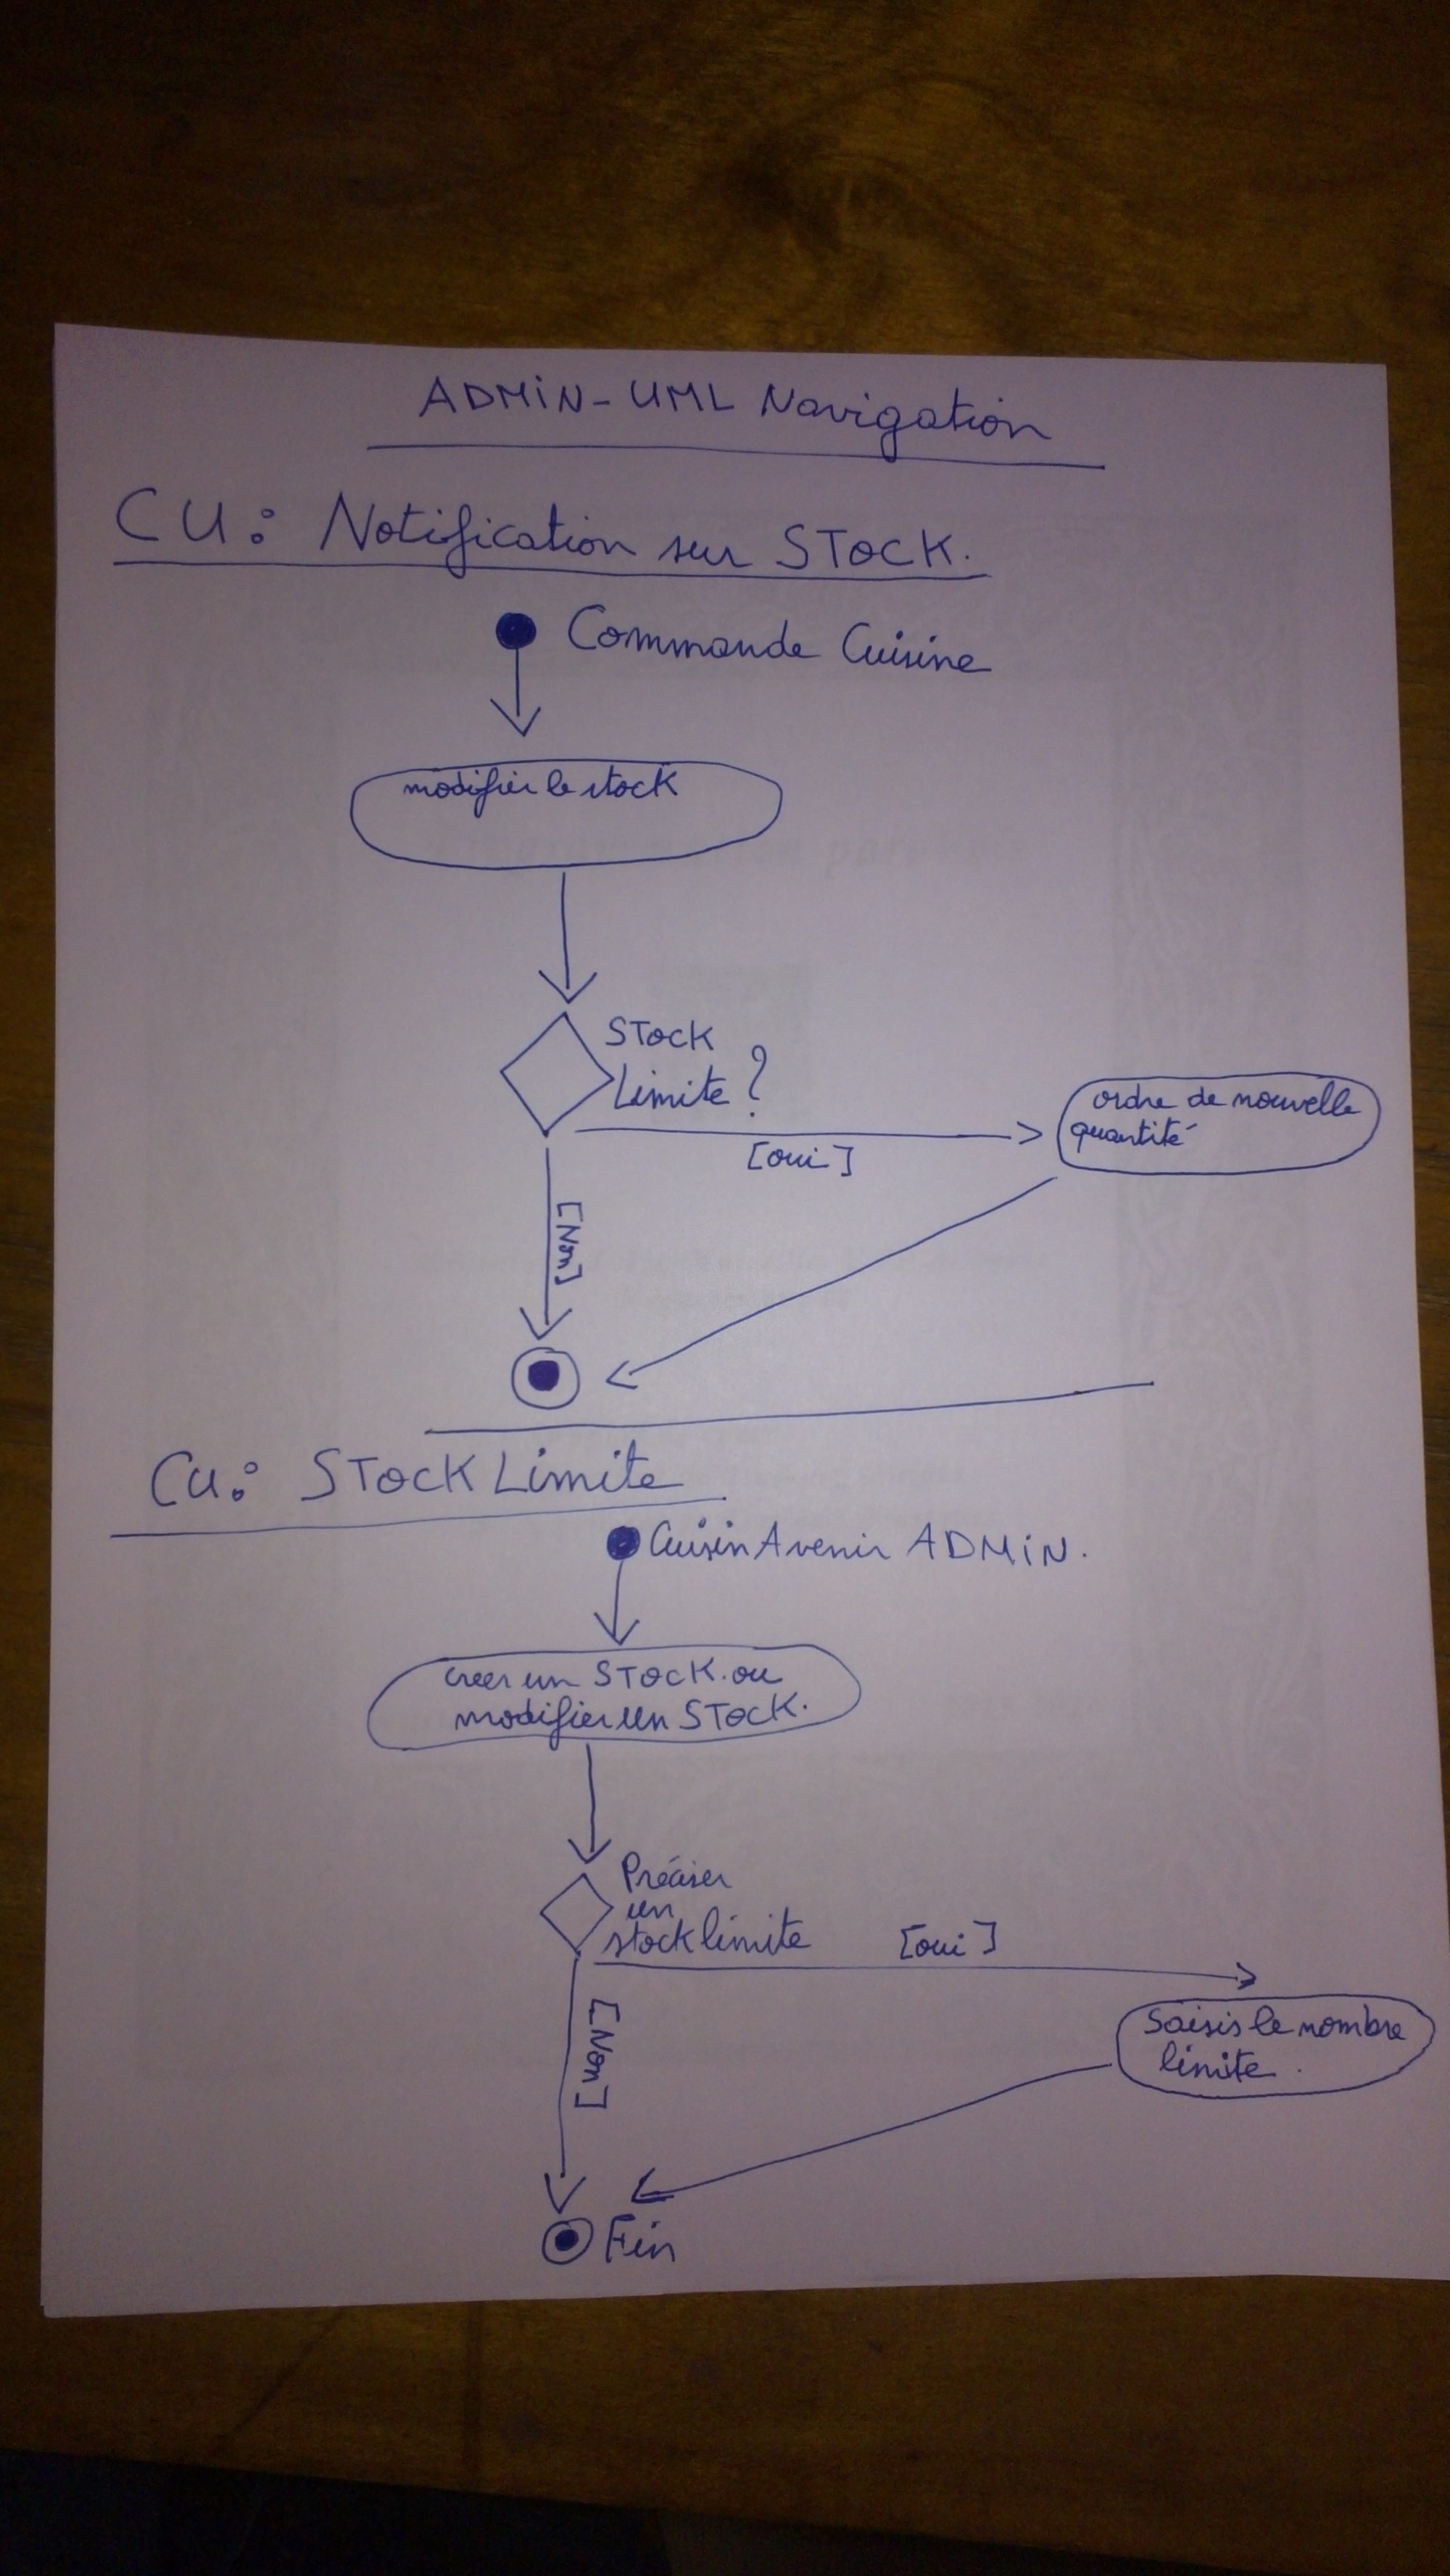 ADMiN-UML Navigation
CU: Notification sur STOCK.
Commande Cuisine
modifier le stock
STOCK
Limite ?
ordre de nouvelle
quantité
[oui]
[Non]
CU: STOCK Limite
CuisinAvenir ADMiN.
creer un STOCK. ou
modifier un STOCK.
Préciser
un
stock limite
[oui]
[Non]
Saisis le nombre
limite.
Fin